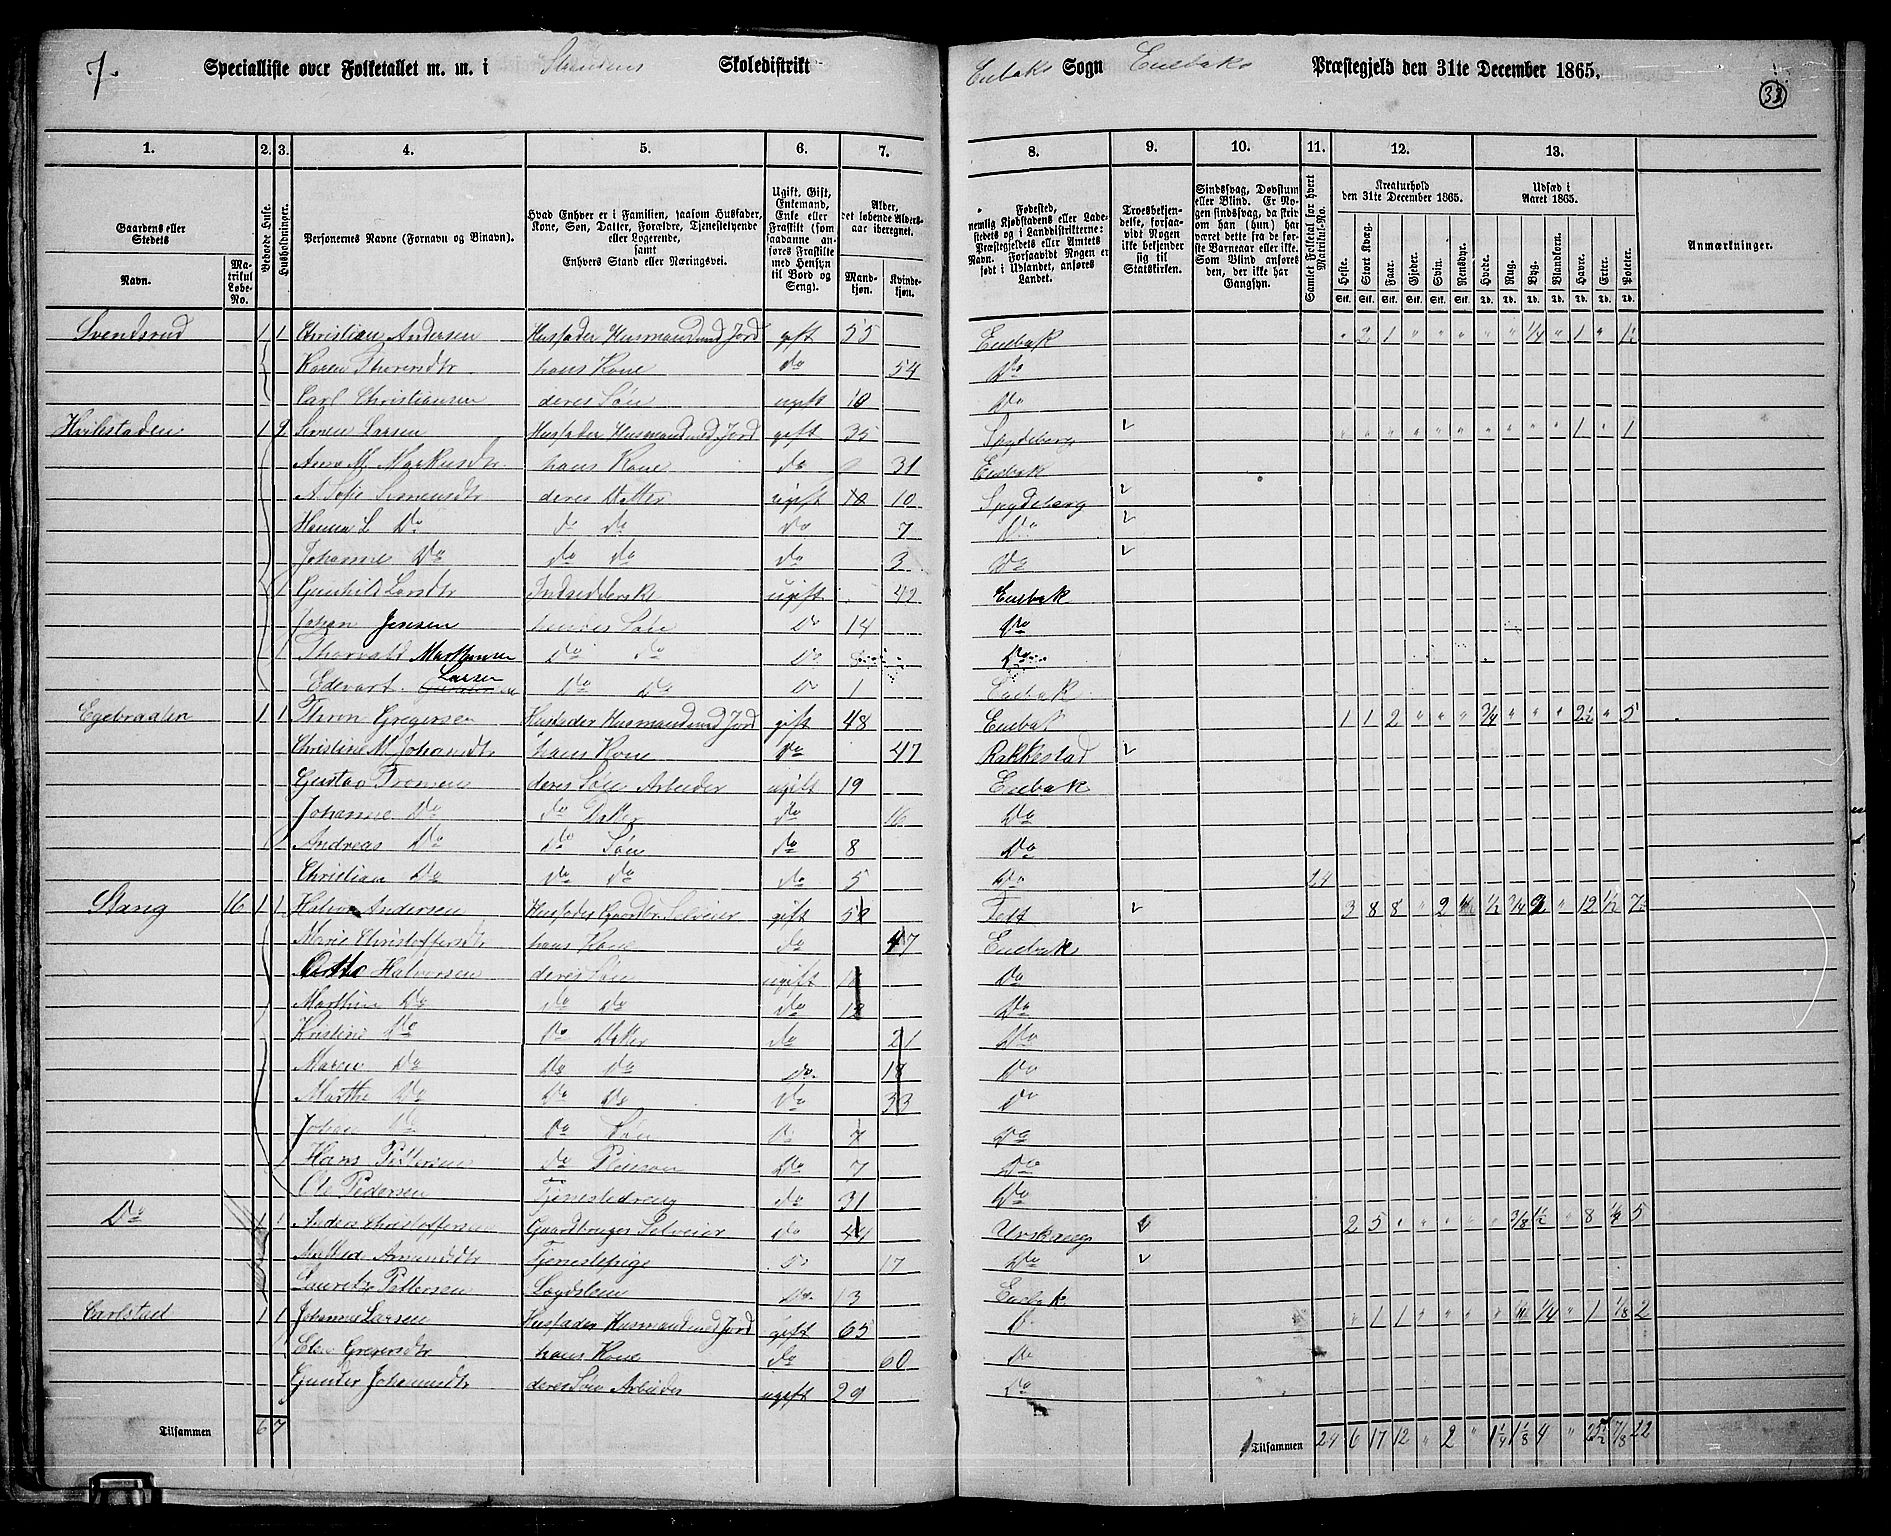 7. Specialliste over Folketallet m. m. i Skoledistrikt Enebaks Sogn Enebaks Præstegjeld den 31te December 1865. 33
1. 2. 3. 4. 5. 6. 7. 8. 9. 10. 11. 12. 13.
Gaardens eller Stedets Navn. Matrikul Løbe-No. Beboede Huse. Husholdninger. Personernes Navne (Fornavn og Binavn). Hvad Enhver er i Familien, saasom Husfader, Kone, Søn, Datter, Forældre, Tjenestetyende eller Logerende, samt Enhvers Stand eller Næringsvei. Ugift, Gift, Enkemand, Enke eller Fraskilt (som saadanne anføres Fraskilte med Hensyn til Bord og Seng). Alder, det løbende Alders-aar iberegnet. Mand-kjøn. Kvinde-kjøn. Fødested, nemlig Kjøbstadens eller Ladestedets og i Landdistrikterne: Præstegjeldets eller Amtets Navn. Forsaavidt Nogen er født i Udlandet, anføres Landet. Troesbekjendelse, forsaavidt Nogen ikke bekjender sig til Statskirken. Sindssvag, Døvstum eller Blind. Er Nogen sindssvag, da skrives om han (hun) har været dette fra de første Barneaar eller ikke. Som Blind anføres den, der ikke har Gangsyn. Samlet Folketal for hvert Matrikul-No. Kreaturhold den 31te December 1865. Heste. Stort Kvæg. Faar. Gjeder. Svin. Rensdyr. Udsæd i Aaret 1865. Hvede. Rug. Byg. Blandkorn. Havre. Erter. Poteter. Anmærkninger.
Svendsrud 1 1 Christian Andersen Husfader Husmand med Jord gift 55 Enebak " 2 1 " " " " " 1/4 " 1 " 1½
Karen Thoresdtr hans Kone do 54 Do
Carl Christiansen deres Søn ugift 10 Do
Hvilestaden 1 2 Simen Larsen Husfader Husmand med Jord gift 35 Spydeberg 1 " 1
Anne M Markusdtr hans Kone do 31 Enebak
A Sofie Simensdtr deres Datter ugift 10 Spydeberg
Hanna L Do do do do 7 Do
Johanne Do do do do 3 Do
Gunhild Larsdtr Indsidderske ugift 42 Enebak
Johan Jensen hendes Søn Do 14 Do
Thorvald Marthinsen Do do Do Do
Edevart Larsen Do Do Do 1 Enebak
Egebraaten 1 1 Thron Gregersen Husfader Husmand med Jord gift 48 Enebak 1 1 2 " " " 3/4 " " " 2½ " 5
Christine M Johansdtr hans Kone Do 47 Rakkestad
Gustav Tronsen deres Søn Arbeider ugift 19 Enebak
Johanne Do do Datter do 16 Do
Andreas Do do Søn do 8 Do
Christian Do do do do 5 Do 24
Stang 16 1 1 Halvor Andersen Husfader Gaardbr. Selveier gift Fet 3 8 8 " 2 " ½ 3/4 2 " 12 ½ 7
Marie Christoffersdtr hans Kone do 47 Enebak
Halvorsen deres Søn ugift Do
Marthin Do do do do Do
Kristine Do Do Datter do 21 Do
Maren Do Do do do 18 Do
Marthe Do Do Do Do Do
Johan Do Do Søn Do 7 Do
Hans Pettersen do Pleiesøn Do 7 Do
Ole Pedersen Tjenestedreng do 31 Do
Do 1 1 Anders Christoffersen Gaardbruger Selveier do 44 Urskoug 2 5 " " " " " 3/8 ½ " 8 ¼ 5
Mathea Amundsdtr Tjenestepige Do 17 Do
Lauritz Pettersen Lægdslem Do 13 Enebak
Carlstad 1 1 Johannes Larsen Husfader Husmand med Jord gift 65 D " 1 1 " " " " 1/4 " 1 1/8 2
Eli Gregersdtr hans Kone do 60 Do
Gunder Johannesdtr deres Søn Arbeider ugift 29 Do
Tilsammen 6 7 Tilsammen 24 6 17 12 " 2 " 1¼ 1 1/8 4 " 7/8 22